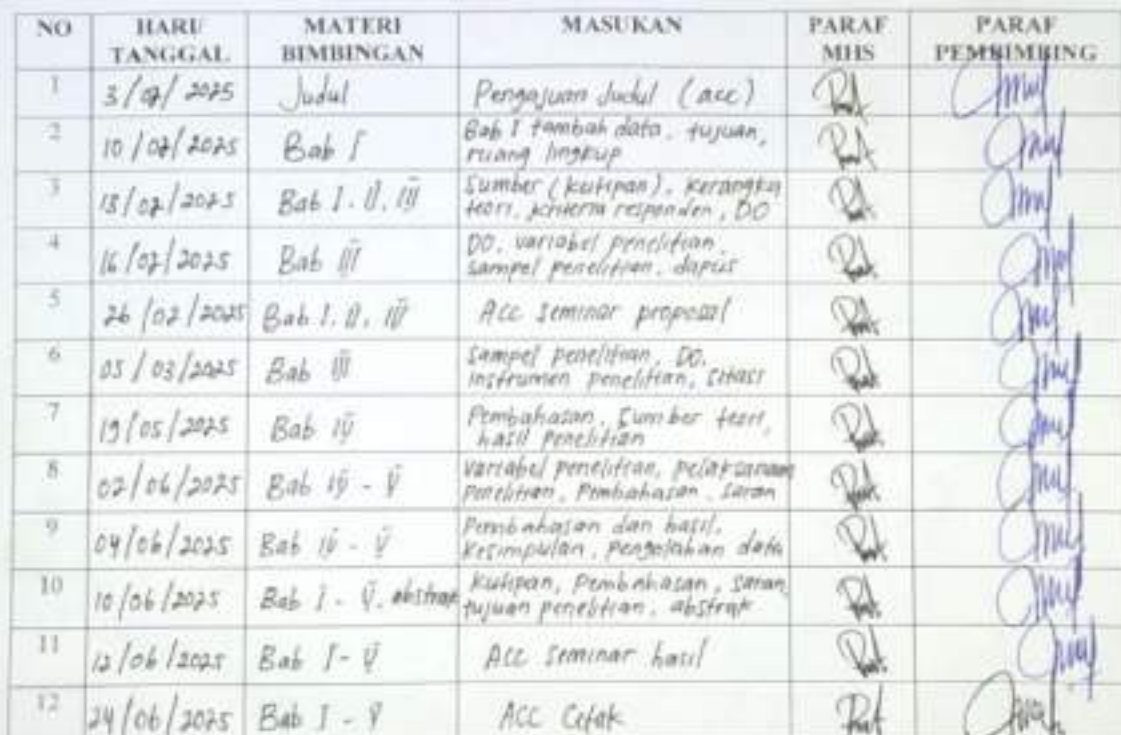 NO HARI/ TANGGAL MATERI BIMBINGAN MASUKAN PARAF MHS PARAF PEMBIMBING
1 3/02/2025 Judul Pengajuan Judul (acc)
2 10/02/2025 Bab I Bab I tambah data, tujuan,
ruang lingkup
3 13/02/2025 Bab I. II. III Sumber (kutipan), Kerangka
teori, kriteria responden, DO
4 16/02/2025 Bab III DO, variabel penelitian,
sampel penelitian, dapus
5 26/02/2025 Bab I. II. III Acc seminar proposal
6 05/03/2025 Bab III Sampel penelitian, DO,
instrumen penelitian, sitasi
7 19/05/2025 Bab IV Pembahasan, Sumber teori,
hasil penelitian
8 02/06/2025 Bab IV - V variabel penelitian, pelaksanaan
penelitian, Pembahasan, saran
9 04/06/2025 Bab IV - V Pembahasan dan hasil,
kesimpulan, pengolahan data
10 10/06/2025 Bab I - V, abstrak kutipan, Pembahasan, saran,
tujuan penelitian, abstrak
11 12/06/2025 Bab I - V Acc seminar hasil
12 24/06/2025 Bab I - V ACC Cetak